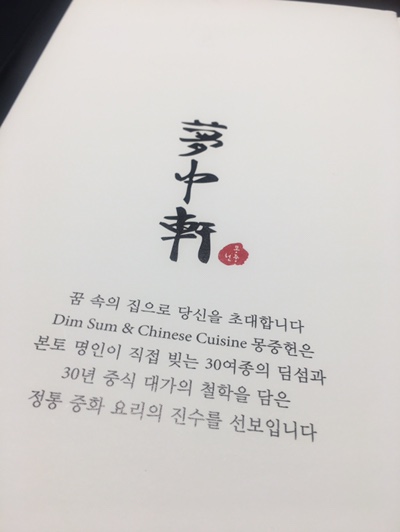 夢中軒
몽중헌
꿈 속의 집으로 당신을 초대합니다
Dim Sum & Chinese Cuisine 몽중헌은
본토 명인이 직접 빚는 30여종의 딤섬과
30년 중식 대가의 철학을 담은
정통 중화 요리의 진수를 선보입니다